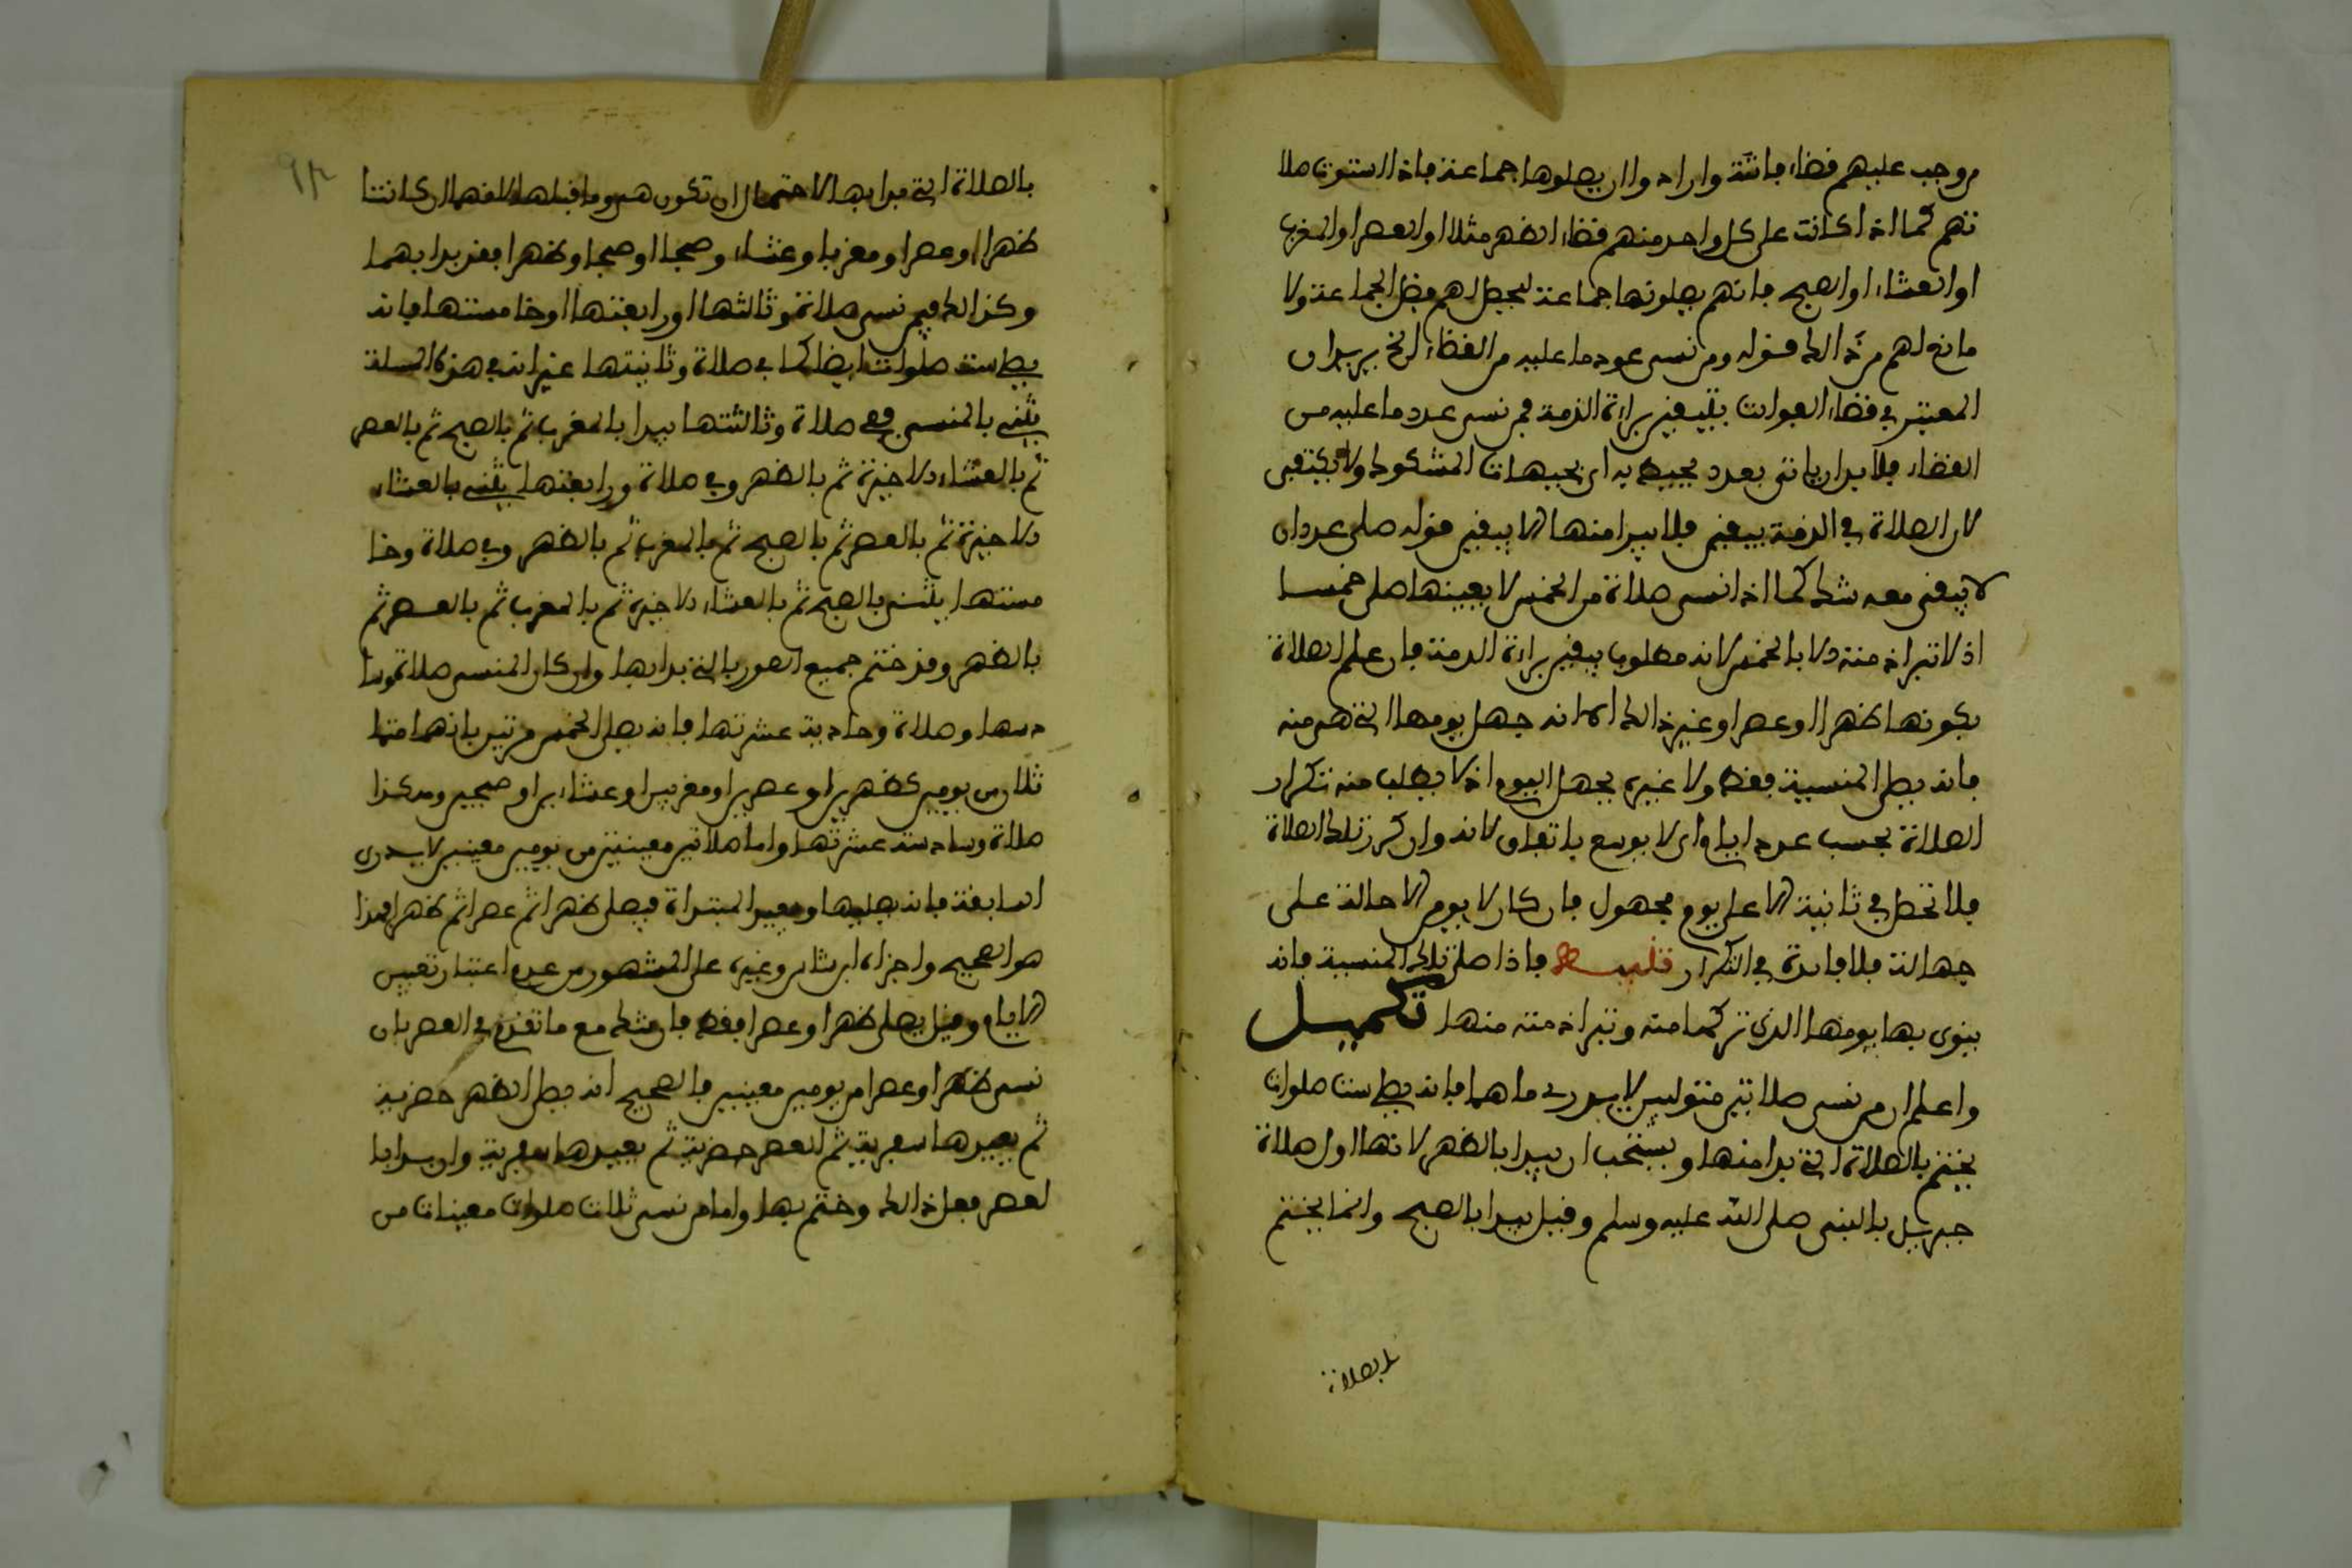 من وجب عليهم قضاء فائتة وارادوا ان يصلوها جماعة فاذا استوت صلا
تهم كما اذا كانت على كل واحد منهم قضاء الظهر مثلا او العصر او المغرب
او العشاء او الصبح فانهم يصلونها جماعة ليحصل لهم فضل الجماعة ولا
مانع لهم من ذالك قوله ومن نسي عدد ما عليه من القضاء الخ يريد ان
المعتبر في قضاء الفوائت بيقين براءة الذمة فمن نسي عدد ما عليه من
القضاء فلا بد ان ياتي بعدد يحيط به اي بجهات الشكوك ولا يكتفي
لان الصلاة في الذمة بيقين فلا يبرا منها الا بيقين قوله صلى عددا
لا يبقى معه شك كما اذا نسي صلاة من الخمس لا بعينها صلى خمسا
اذ لا تبرا ذمته الا بالخمس لانه مطلوب بيقين براءة الذمة فان علم الصلاة
بكونها ظهرا او عصرا وغير ذالك الا انه جهل يومها التي هي منه
فانه يصلي المنسية فقط ولا غيره بجهل اليوم اذ لا يطلب منه تكرار
الصلاة بحسب عدد ايام الاسبوع باتفاق لانه وان كرر تلك الصلاة
فلا تحصل في ثانية الا على يوم مجهول فان كان لا يومي الا حالة على
جهالة فلا فائدة في التكرار تنبيه فاذا صلى تلك المنسية فانه
ينوي بها يومها الذي تركها منه وتبرا ذمته منها تكميل
واعلم ان من نسي صلاتين متواليتين لا يدري ما هما فانه يصلي ست صلوات
يختم بالصلاة التي بدا منها ويستحب ان يبدا بالظهر لانها اول صلاة
جبريل بالنبي صلى الله عليه وسلم وقيل يبدا بالصبح وانما يختم
بالصلاة
٩٣
بالصلاة التي بدا بها لاحتمال ان تكون هي وما قبلها لانهما ان كانتا
ظهرا وعصرا ومغربا وعشاء وصبحا او صبحا وظهرا فقد بدا بهما
وكذالك فيمن نسي صلاة وثالثتها او رابعتها او خامستها فانه
يصلي ست صلوات ايضا كما في صلاة وثانيتها غير انه في هذه المسئلة
يثني بالمنسي ففي صلاة وثالثتها يبدا بالمغرب ثم بالصبح ثم بالعصر
ثم بالعشاء الاخيرة ثم بالظهر وفي صلاة ورابعتها يثني بالعشاء
الاخيرة ثم بالعصر ثم بالصبح ثم بالمغرب ثم بالظهر وفي صلاة وخا
مستها يثني بالصبح ثم بالعشاء الاخيرة ثم بالمغرب ثم بالعصر ثم
بالظهر وقد ختم جميع الصور بالتي بدا بها وان كان المنسي صلاة وسا
دستها وصلاة وحادية عشرتها فانه يصلي الخمس مرتين بانهما متما
ثلان من يومين كظهرين او عصرين او مغربين او عشاءين او صبحين وهكذا
صلاة وسادسة عشرتها واما صلاتين معينتين من يومين معينين لا يدري
السابقة فانه يصليهما ويعيد المبتداة فيصلي ظهرا ثم عصرا ثم ظهرا هذا
هو الصحيح واجزاء ابن بشير وغيره على المشهور من عدم اعتبار تعيين
الايام وقيل يصلي ظهرا وعصرا فقط فان شك مع ما تقدم في القصر بان
نسي ظهرا وعصرا من يومين معينين فالصحيح انه يصلي الظهر حضرية
ثم يعيدها سفرية ثم العصر حضرية ثم يعيدها سفرية وان بدا با
لعصر فعل ذالك وختم بها واما من نسي ثلاث صلوات معينات من